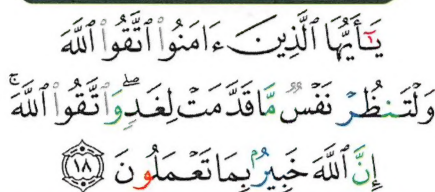 يَـٰٓأَيُّهَا ٱلَّذِينَ ءَامَنُوا۟ ٱتَّقُوا۟ ٱللَّهَ
وَلْتَنظُرْ نَفْسٌ مَّا قَدَّمَتْ لِغَدٍۖ وَٱتَّقُوا۟ ٱللَّهَۚ
إِنَّ ٱللَّهَ خَبِيرٌۢ بِمَا تَعْمَلُونَ ١٨